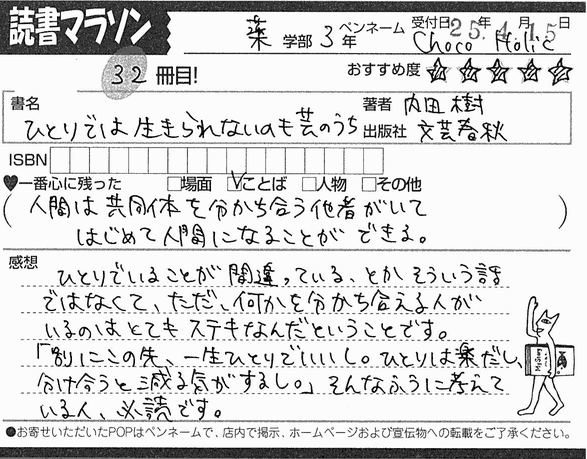 読書マラソン
薬 学部 3年 ペンネーム Choco Holic 受付日 25年 4月 15日
32冊目! おすすめ度 ☆☆☆☆☆
書名 ひとりでは生きられないのも芸のうち
著者 内田樹
出版社 文芸春秋
ISBN
♥一番心に残った □場面 ☑ことば □人物 □その他
(人間は共同体を分かち合う他者がいて
はじめて人間になることができる。)
感想
ひとりでいることが間違っている、とかそういう話
ではなくて、ただ、何かを分かち合える人が
いるのはとてもステキなんだということです。
「別にこの先、一生ひとりでいいし。ひとりは楽だし、
分け合うと減る気がするし。」そんなふうに考えて
いる人、必読です。
●お寄せいただいたPOPはペンネームで、店内で掲示、ホームページおよび宣伝物への転載をご了承ください。